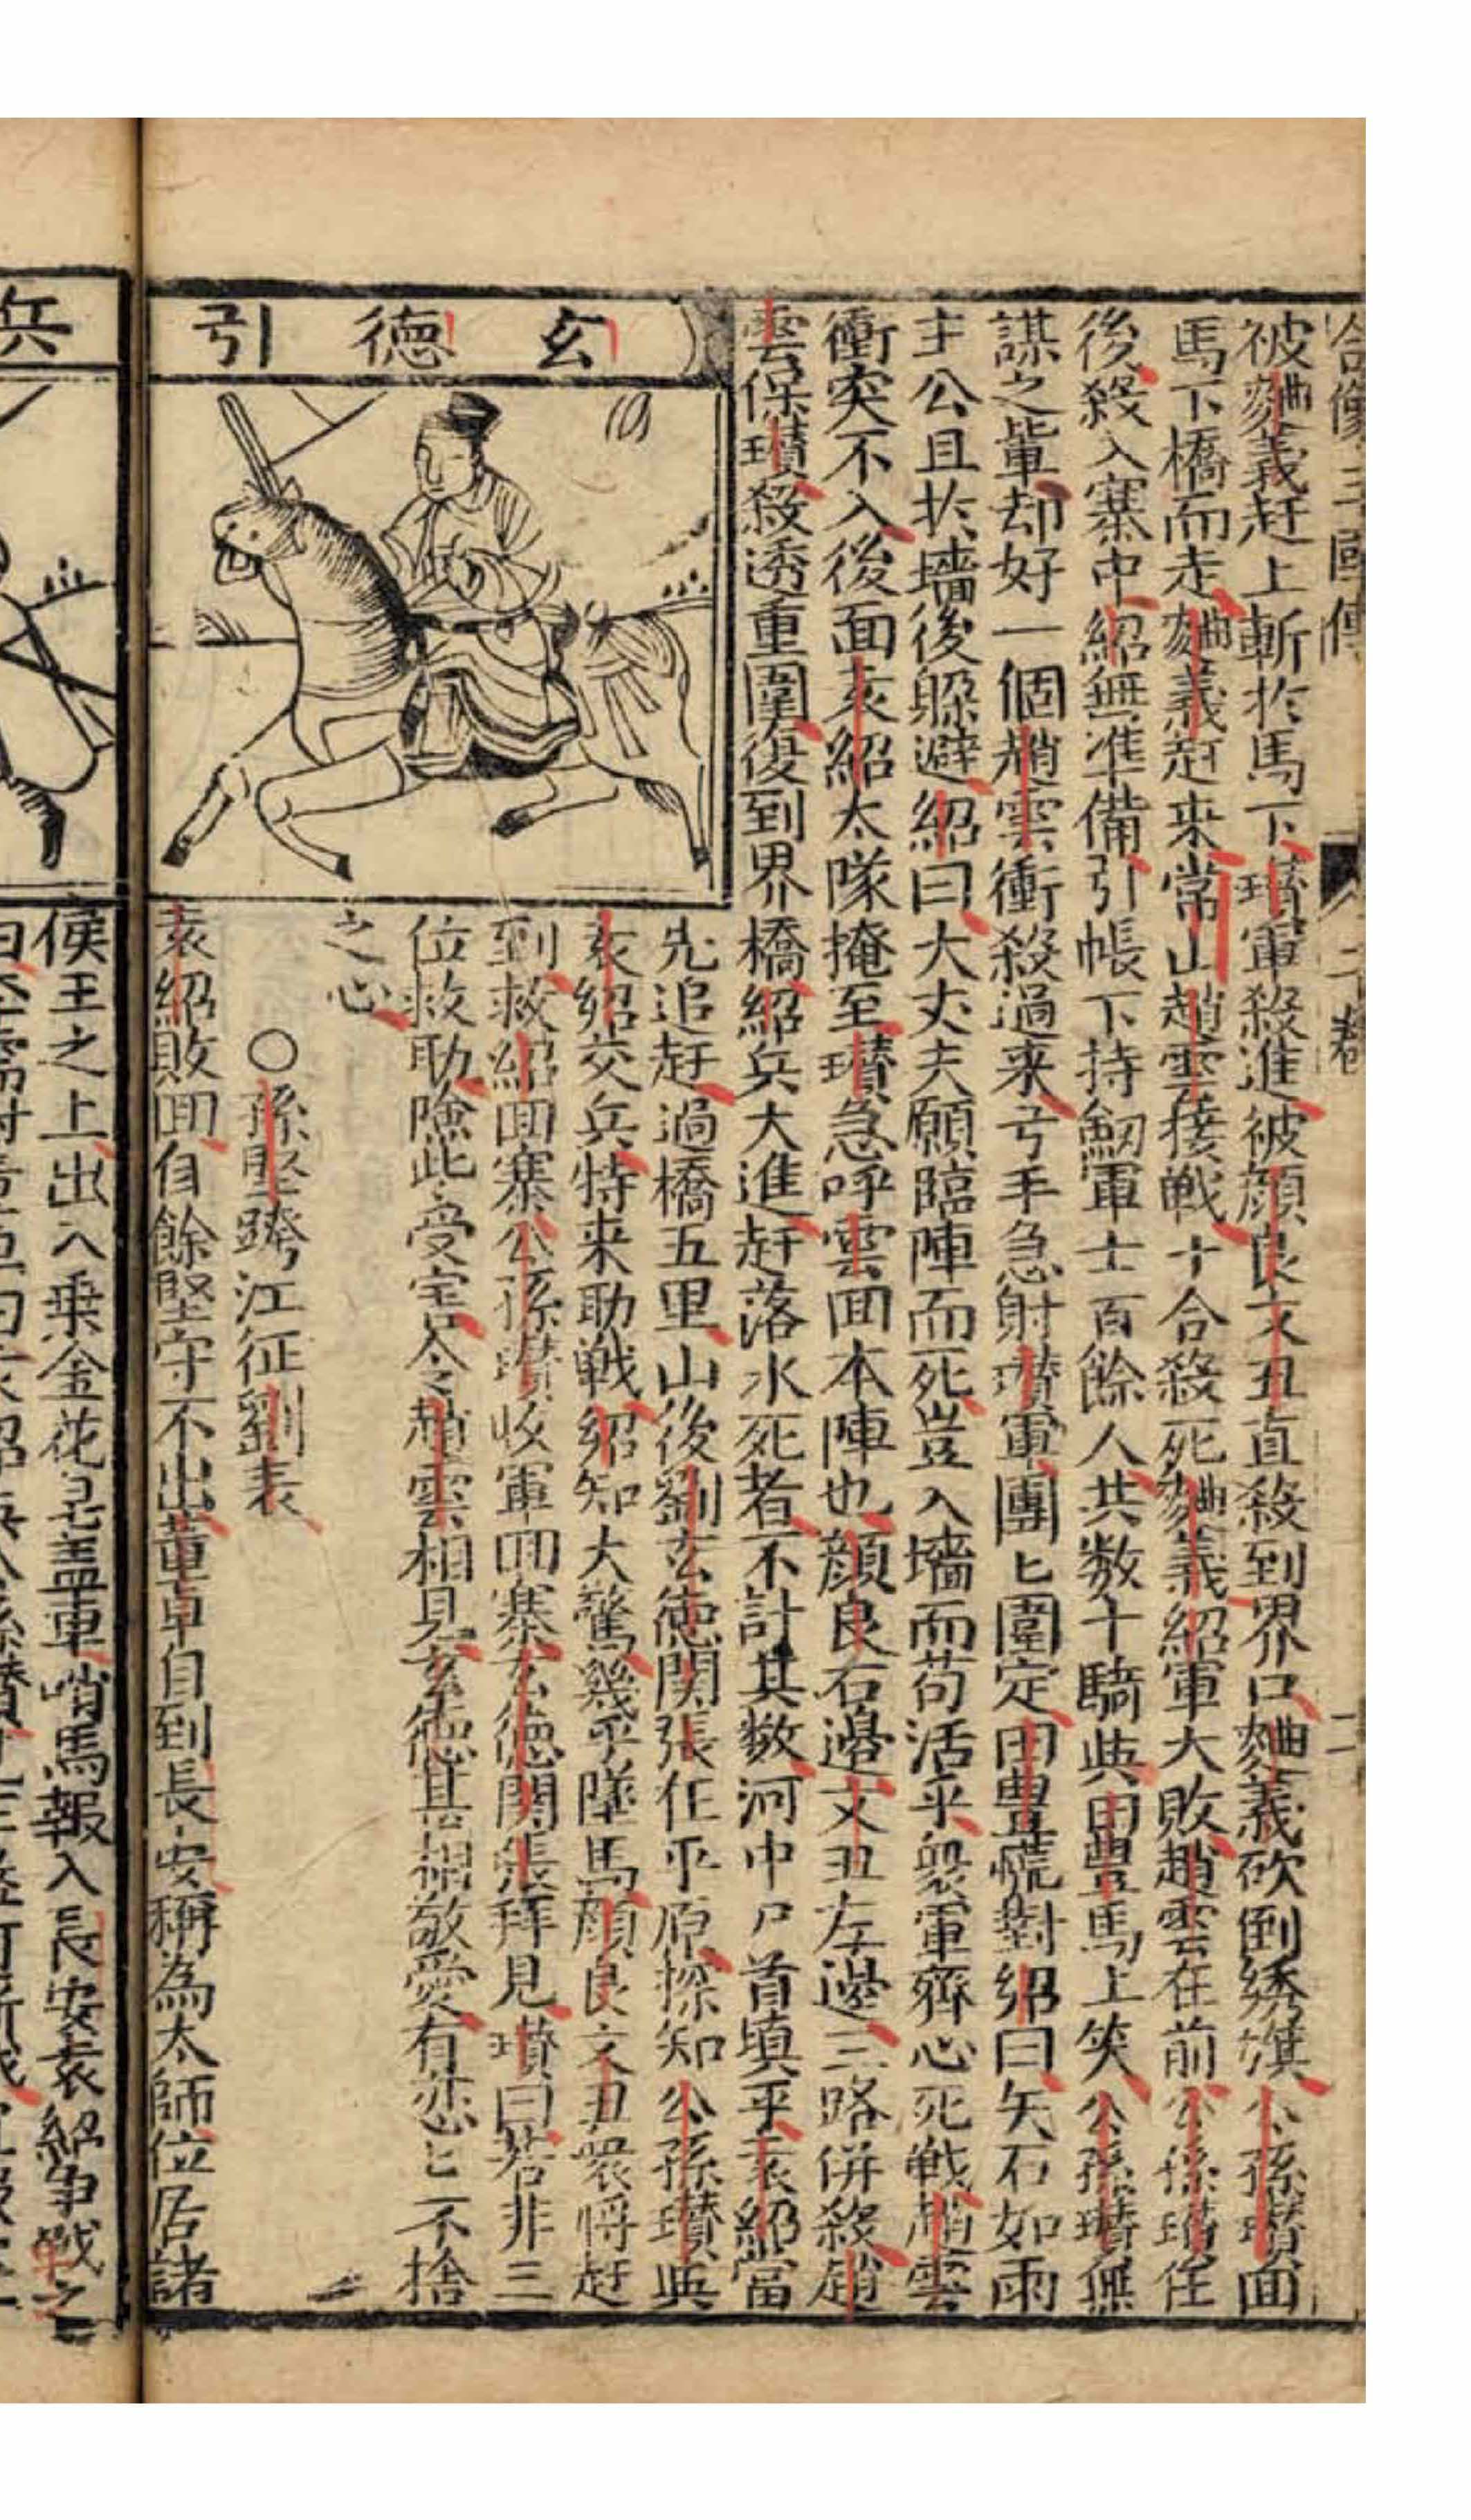 合像三國傳
二卷
二
被麯義赶上斬於馬下瓚軍殺進被顔良文丑直殺到界口麯義砍倒綉旗公孫瓚囬
馬下橋而走麯義赶来常山趙雲接戰十合殺死麯義紹軍大敗趙雲在前公孫瓚在
後殺入寨中紹無準備引帳下持劒軍士百餘人共数十騎與田豐馬上笑公孫瓚無
謀之輩却好一個趙雲衝殺過来弓手急射瓚軍團匕圍定田豊慌對紹曰矢石如雨
主公且扵墻後躱避紹曰大丈夫願臨陣而死豈入墻而苟活乎衆軍齊心死戰趙雲
衝突不入後面袁紹大隊掩至瓚急呼雲囬本陣也顔良右邉文丑左邉三路併殺趙
雲保瓚殺透重圍復到界橋紹兵大進赶落水死者不計其数河中尸首填平袁紹當
先追赶過橋五里山後劉玄德関張在平原探知公孫瓚與
袁紹交兵特来助戰紹知大驚幾乎墜馬顔良文丑衆将赶
到救紹囬寨公孫瓚收軍囬寨玄德関張拜見瓚曰若非三
位救助險此受害令趙雲相見玄德甚相敬愛有恋匕不捨
之心
○孫堅跨江征劉表
袁紹敗囬自餘堅守不出董卓自到長安稱為太師位居諸
玄德引
兵
侯王之上出入乗金花皂盖車哨馬報入長安袁紹争戰之